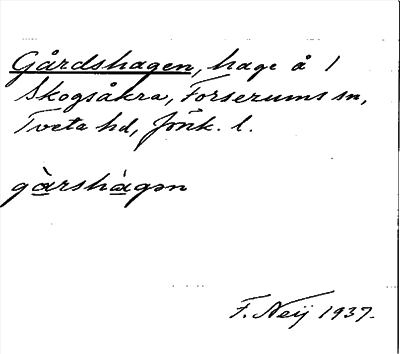 Gårdshagen, hage å 1
Skogsåkra, Forserums sn,
Tveta hd, Jönk. l.
gàrshàgən
F. Neij 1937.